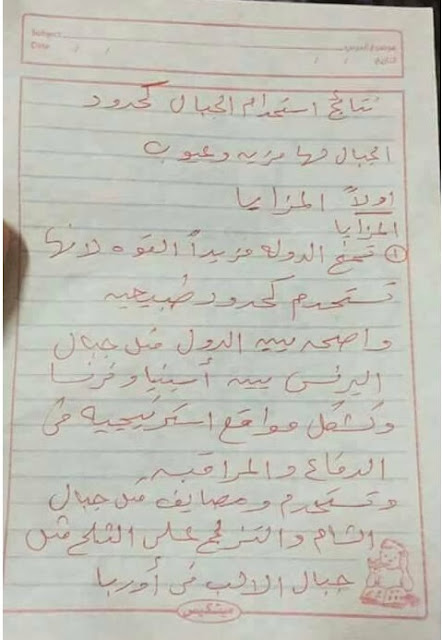 Subject
Date / /
موضوع الدرس
التاريخ / /
نتائج استخدام الجبال كحدود
الجبال لها مزيه وعيوب
اولاً المزايا
المزايا
① تمنح الدوله مزيداً القوه لانها
تستخدم كحدود طبيعيه
واضحه بين الدول مثل جبال
البرنس بين أسبنيا وفرنسا
وتشكل مواقع استرتيجيه فى
الدفاع والمراقبه
وتستخدم ومصايف مثل جبال
الشام والتزلج على الثلج مثل
جبال الالب فى أوربا
مينتكيس